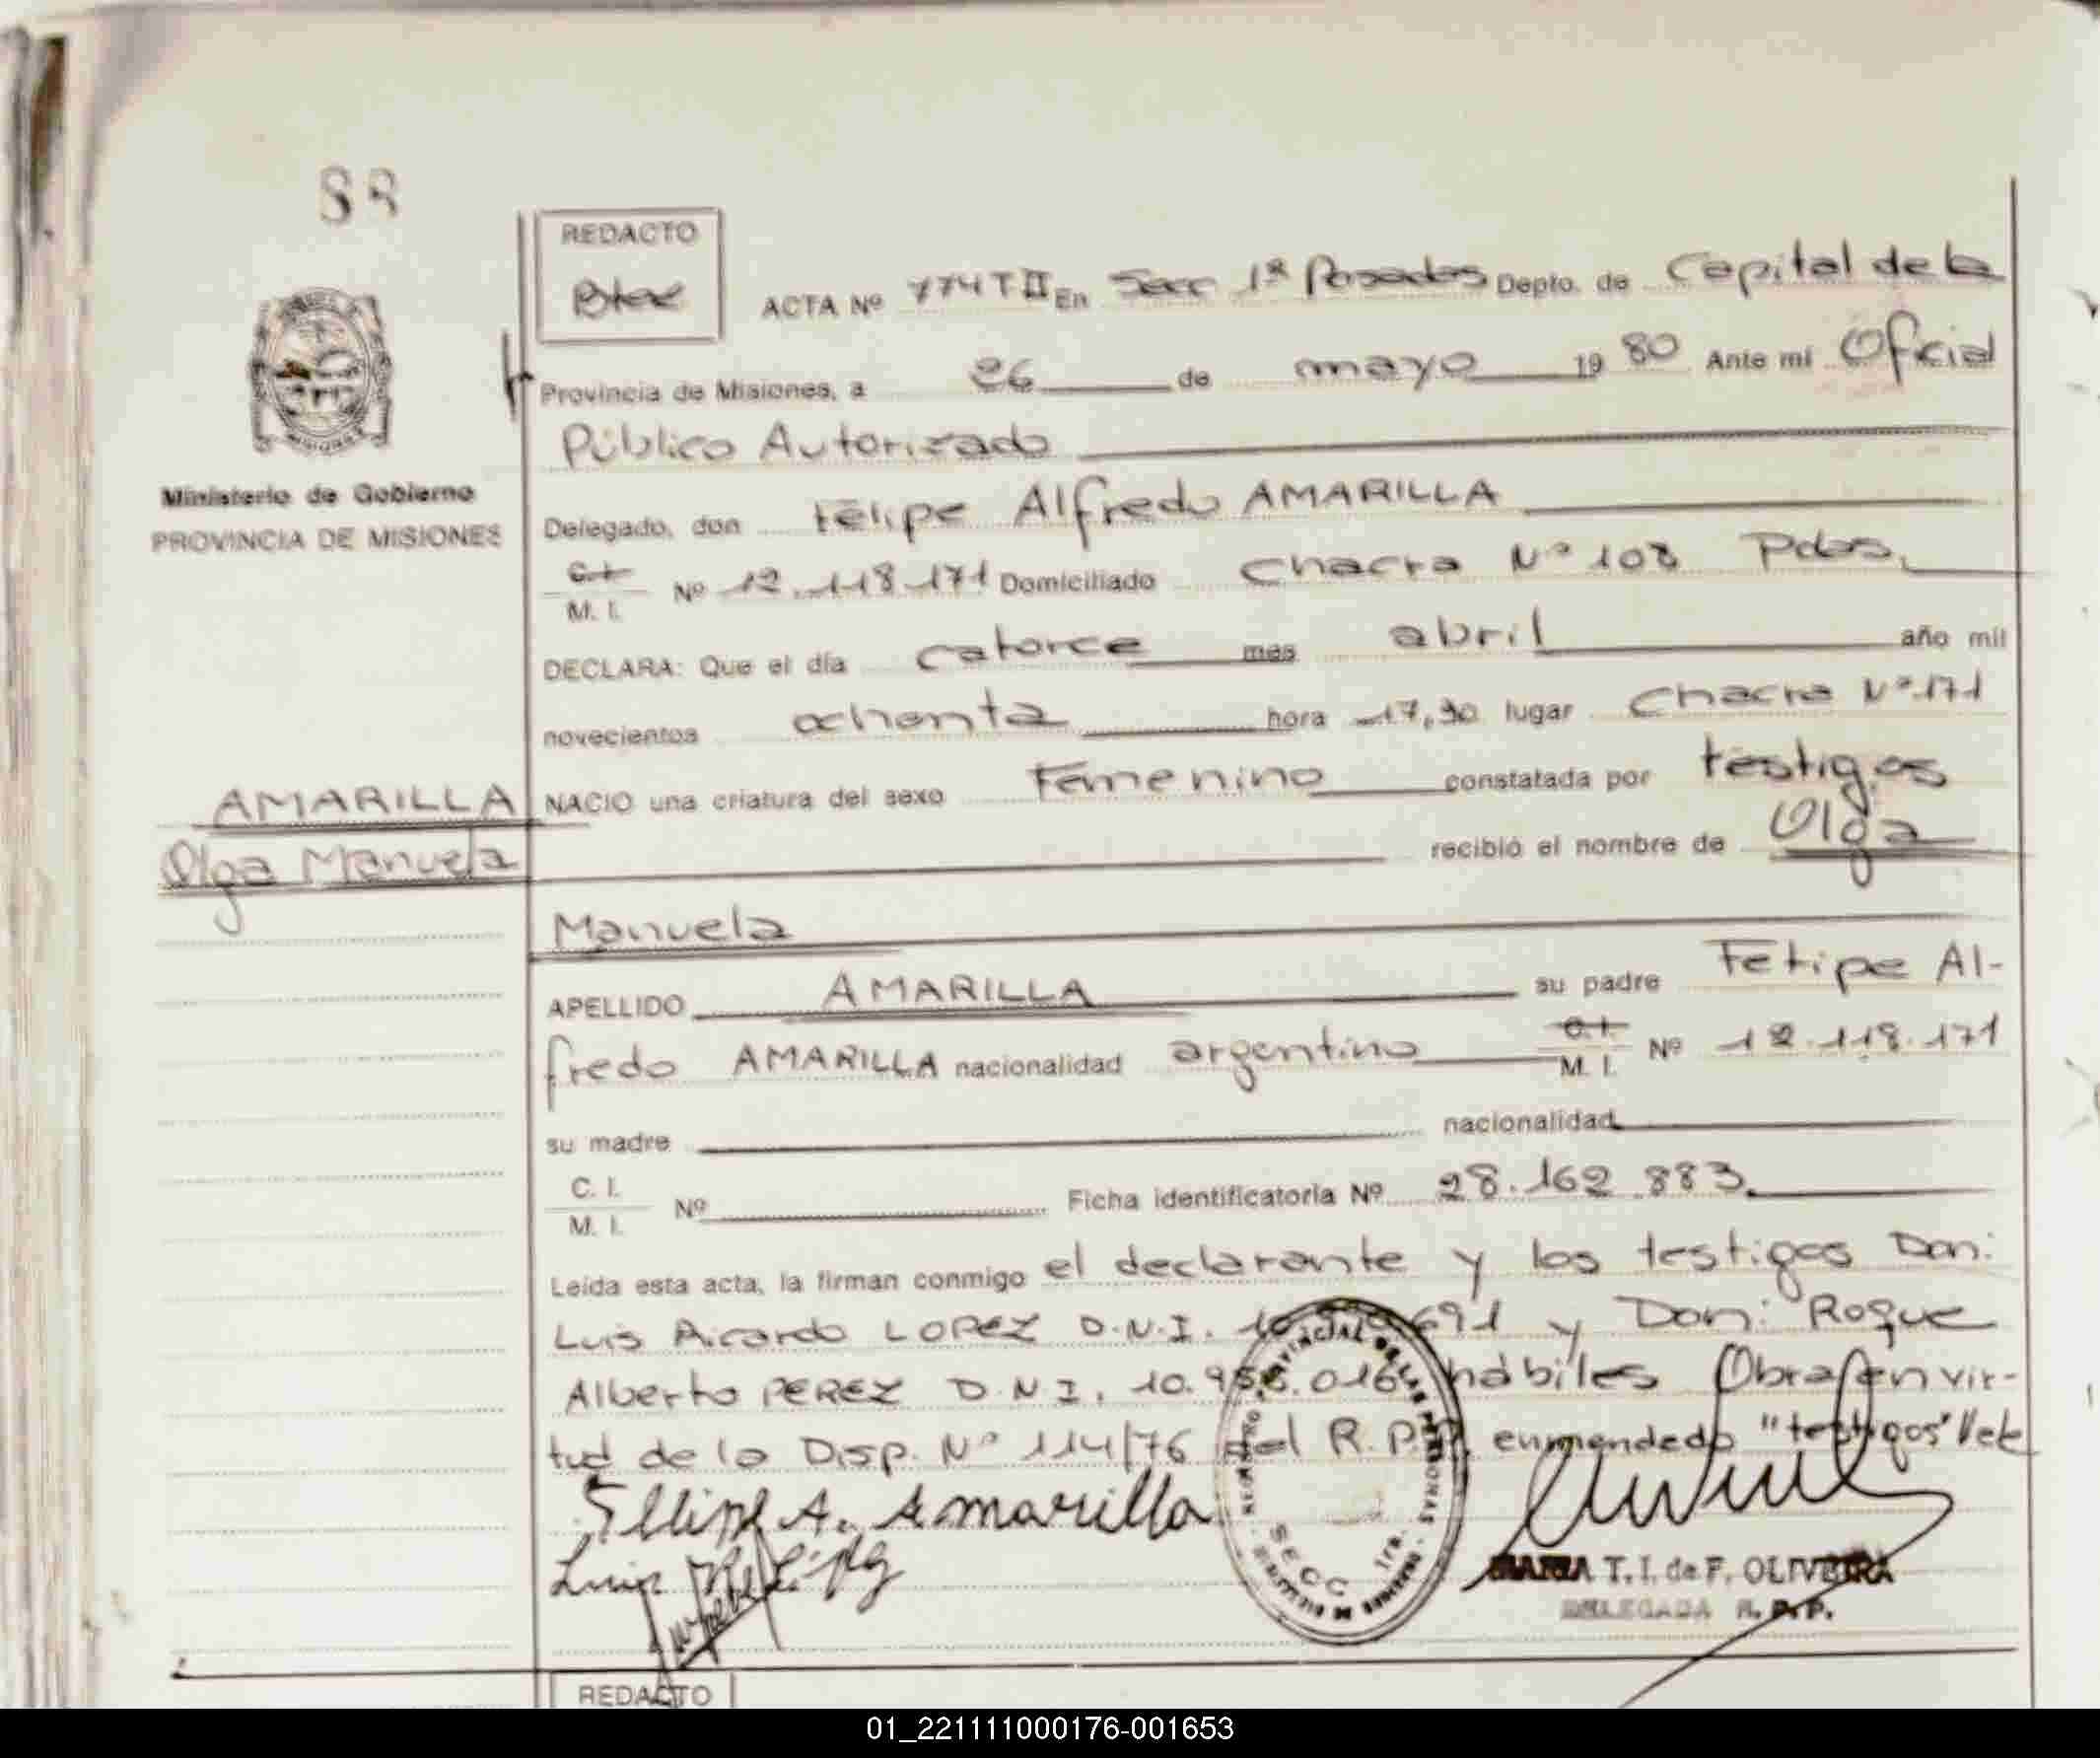 88
REDACTO
ACTA Nº 774 T II En Secc 1ª Posadas Depto. de Capital de la
Provincia de Misiones, a 26 de mayo 1980 Ante mí Oficial
Público Autorizado
Ministerio de Gobierno
PROVINCIA DE MISIONES
Delegado, don Felipe Alfredo AMARILLA
C.I.
M. I. Nº 12.118.171 Domiciliado Chacra Nº 108 Pdas.
DECLARA: Que el día catorce mes abril año mil
novecientos ochenta hora 17,30 lugar Chacra Nº 171
NACIO una criatura del sexo Femenino constatada por testigos
AMARILLA
Olga Manuela
recibió el nombre de Olga
Manuela
APELLIDO AMARILLA su padre Felipe Al-
fredo AMARILLA nacionalidad argentino C.I. M. I. Nº 12.118.171
su madre nacionalidad
C. I.
M. I. Nº Ficha identificatoria Nº 28.162.883.
Leída esta acta, la firman conmigo el declarante y los testigos Don:
Luis Ricardo LOPEZ D.N.I. 691 y Don: Roque
Alberto PEREZ D.N.I. 10.955.016 hábiles Obra en vir-
tud de la Disp. Nº 114/76 del R.P.P. enmendado "testigos" Vale
Felipe A. Amarilla
Luis López
SECC 1ra.
MARIA T. I. de F. OLIVEIRA
DELEGADA R. P. P.
REDACTO
01_221111000176-001653